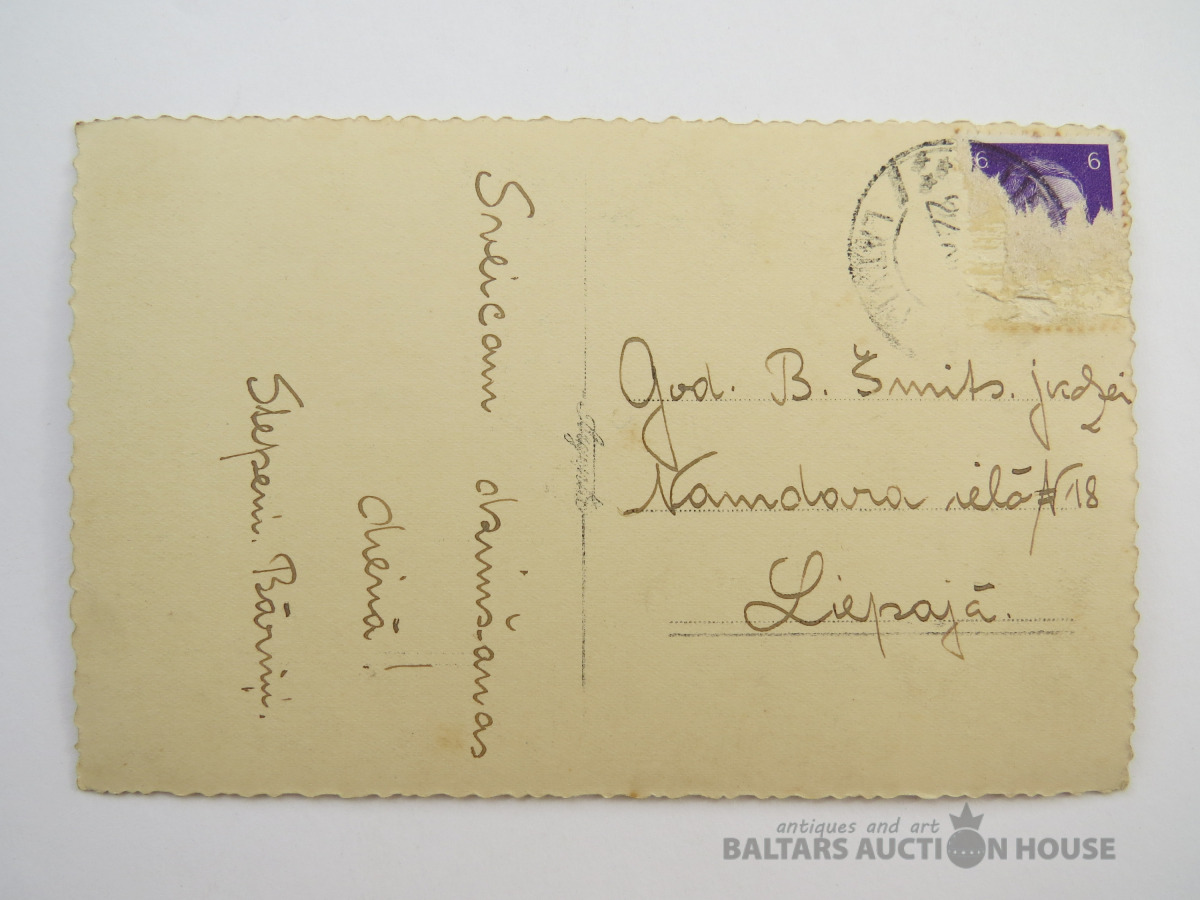 Sveicam dzimšanas
dienā!
Slepeni. Bāriņi.
God. B. Šmits. jkdzei
Namdara ielā № 18
Liepajā.
6 6
22.
antiques and art
BALTARS AUCTION HOUSE